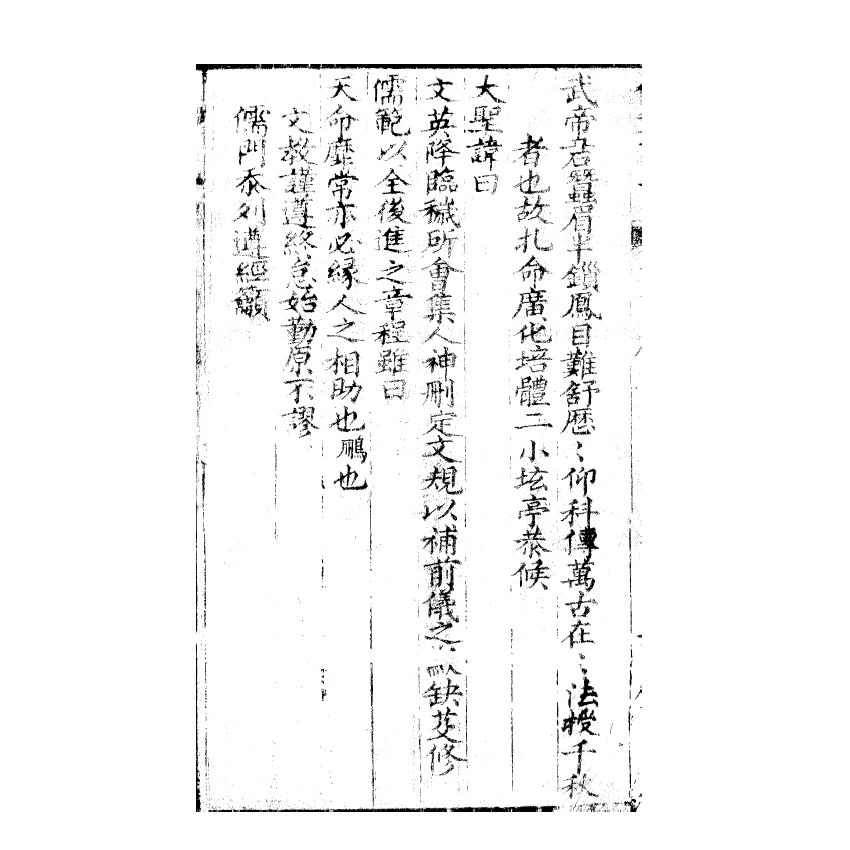 武帝君蠶眉半鎖鳳目難舒歷〻仰科傳萬古在〻法授千秋
者也故扎命廣化培體二小坛亭恭候
大聖諱曰
文英降臨穢所會集人神刪定文規以補前儀之缺芟修
儒範以全後進之章程雖曰
天命靡常亦必緣人之相助也鵬也
文教謹遵終怠始勤原不謬
儒門忝列遵經籲